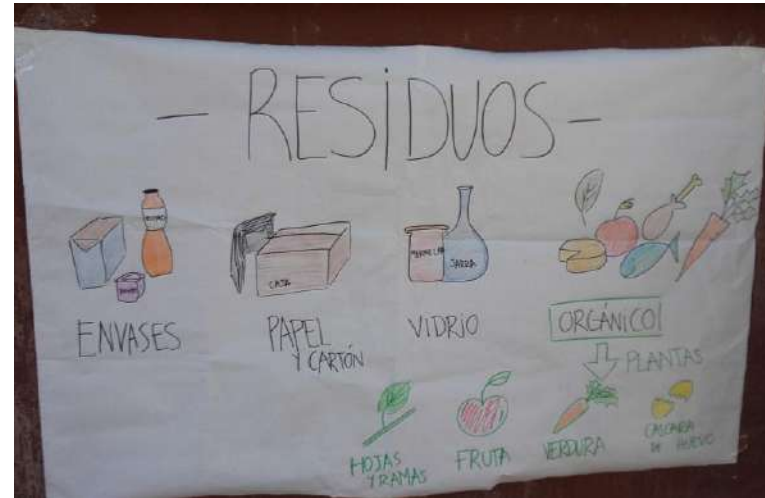 - RESIDUOS -
CAJA
MERMELADA
JARRA
ENVASES
PAPEL
Y CARTÓN
VIDRIO
ORGÁNICO
PLANTAS
HOJAS
Y RAMAS
FRUTA
VERDURA
CASCARA
DE HUEVO